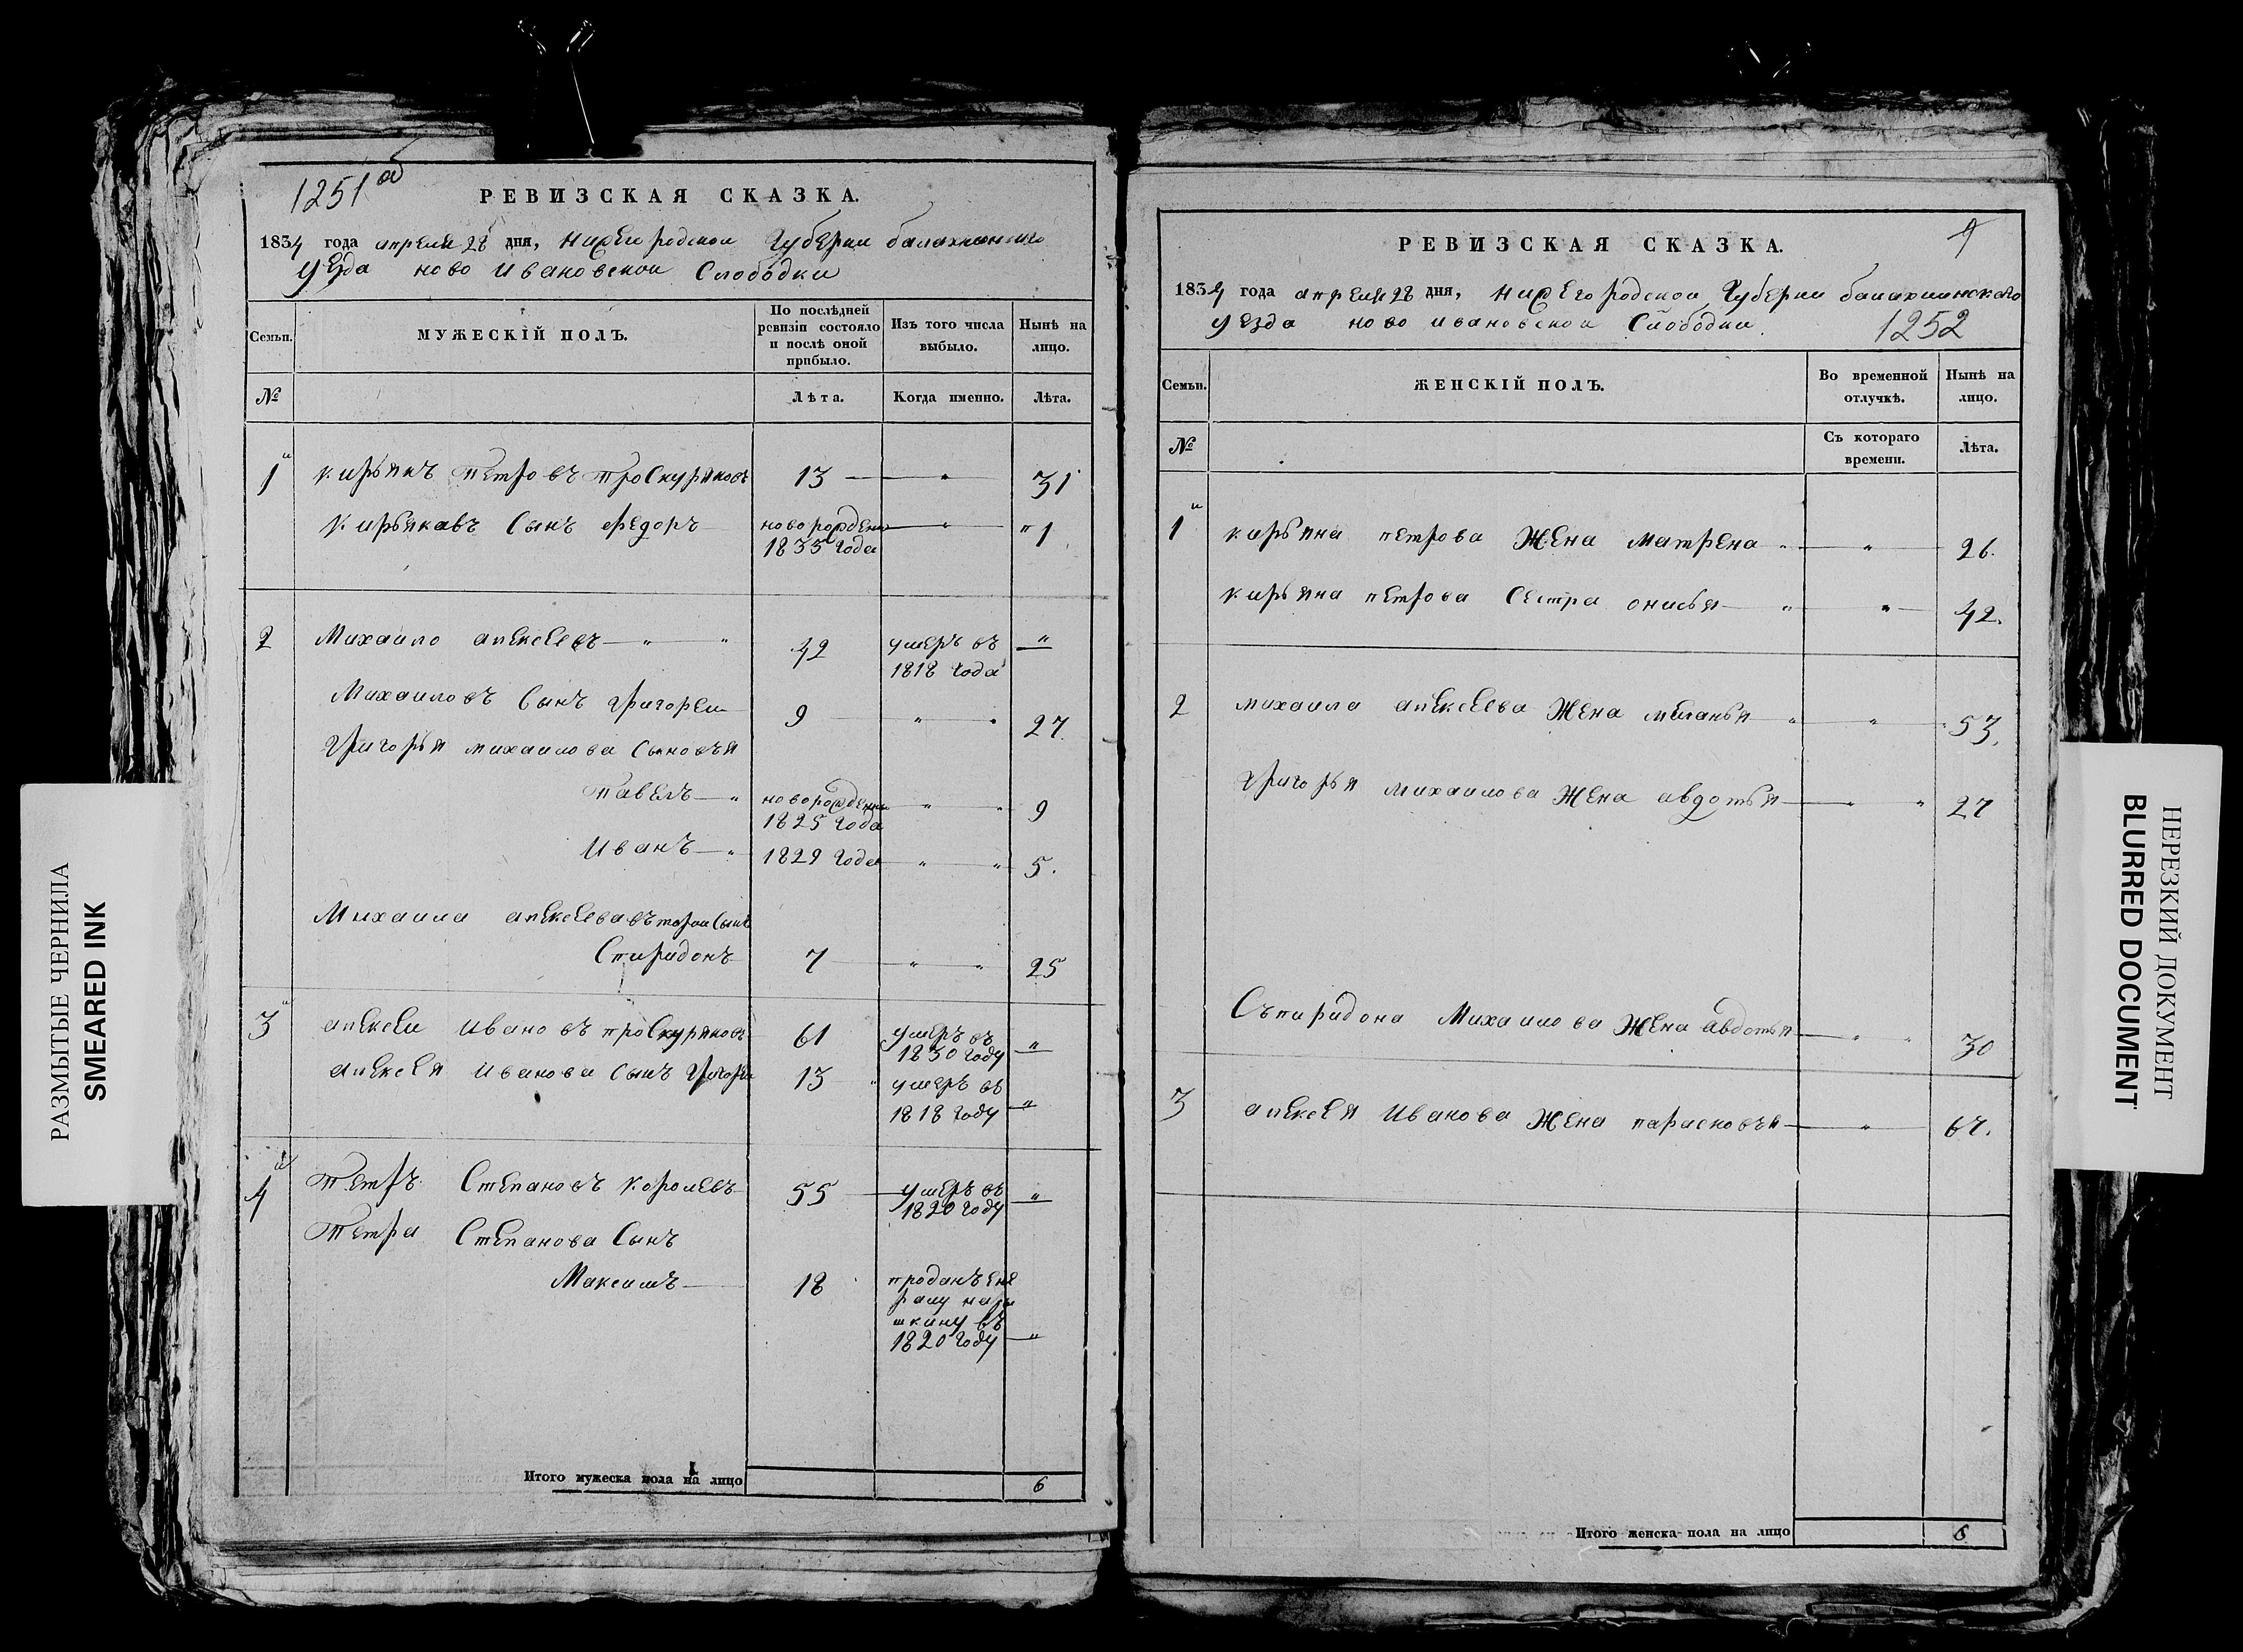 1251 об
РЕВИЗСКАЯ СКАЗКА.
1834 года апреля 28 дня, Нижегородской Губернии балахнинскаго
уезда ново Ивановской Слободки
Семьи.
МУЖЕСКІЙ ПОЛЪ.
По послѣдней ревизіи состояло и послѣ оной прибыло.
Изъ того числа выбыло.
Нынѣ на лицо.
№
Лѣта.
Когда именно.
Лѣта.
1 й кирьянъ петровъ проскуряковъ 13 — " — 31
кирьяковъ Сынъ федоръ — новорожденъ 1833 года — " — " 1
2 Михаило алексеевъ — " — " 42 умеръ въ 1818 года "
Михаиловъ Сынъ григореи 9 — " — " 27
григорья михаилова Сыновья
павелъ — " новорожденъ 1825 года " — " 9
Иванъ — " 1829 года — " — " 5.
Михаила алексеева второи Сынъ
Спиридонъ 7 — " — " 25
3 й алексеи Ивановъ проскуряковъ 61 умеръ въ 1830 году — "
алексея Иванова Сынъ григореи 13 " умеръ въ 1818 году — "
4 й Петръ Степановъ королевъ 55 — умеръ въ 1820 году — "
Петра Степанова Сынъ
Максимъ — 18 проданъ ене
ралу нары
шкину въ
1820 году — "
Итого мужеска пола на лицо 6
РЕВИЗСКАЯ СКАЗКА.
1834 года апреля 28 дня, Нижегородской Губернии балахнинскаго
уезда ново ивановской Слободки.
1252
Семьи.
ЖЕНСКІЙ ПОЛЪ.
Во временной отлучкѣ.
Нынѣ на лицо.
№
Съ котораго времени.
Лѣта.
1 й кирьяна петрова Жена матрена " — " — 26.
кирьяна петрова Сестра онисья — " " — 42.
2 михаила алексеева Жена меланья " — " — 53.
григорья михаилова Жена авдотья — " " 27
Съпиридона Михаилова Жена авдотья — " " 30
3 алексея Иванова Жена парасковья — " — 67.
Итого женска пола на лицо 6
РАЗМЫТЫЕ ЧЕРНИЛА
SMEARED INK
НЕРЕЗКИЙ ДОКУМЕНТ
BLURRED DOCUMENT